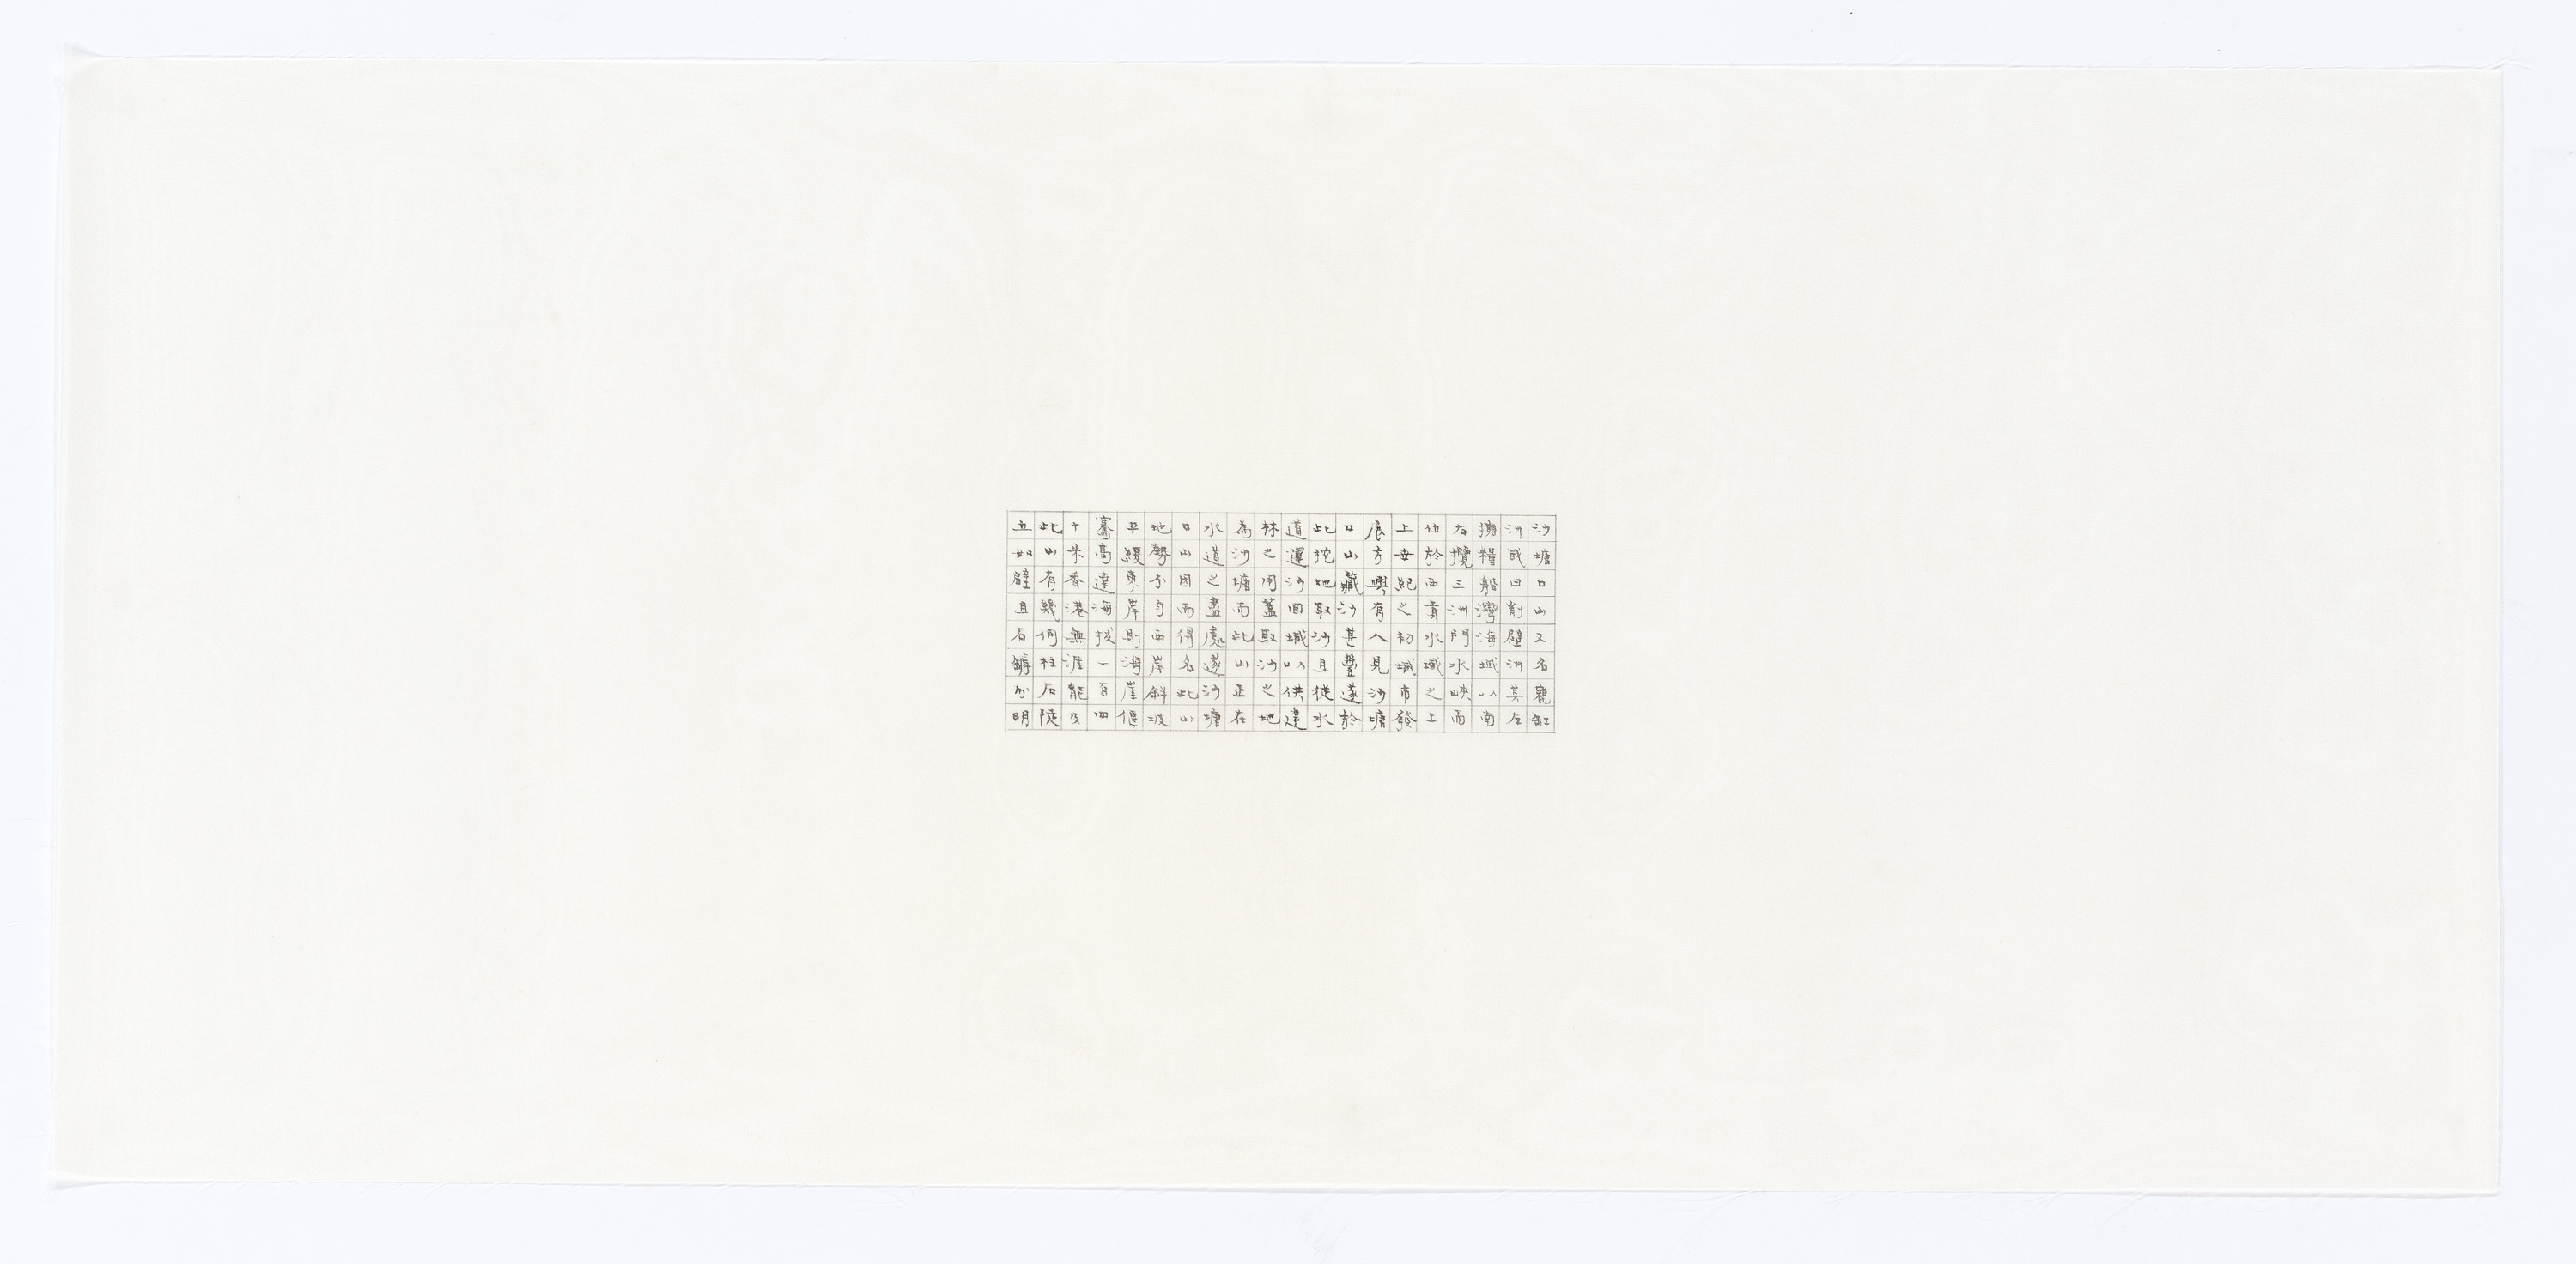 沙塘口山又名甕缸
洲或曰削壁洲其左
擁糧船灣海域以南
右攬三洲門水峽而
位於西貢水域之上
上世紀之初城市發
展方興有人見沙塘
口山藏沙甚豐遂於
此挖地取沙且從水
道運沙回城以供建
材之用蓋取沙之地
為沙塘而此山正在
水道之盡處遂沙塘
口山因而得名此山
地勢不勻西岸斜坡
平緩東岸則海崖偃
蹇高達海拔一百四
十米香港無涯能及
此山有幾何柱石陡
立如壁且石罅分明